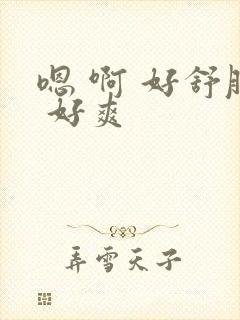 嗯 啊 好舒服
好爽
弄雪天子